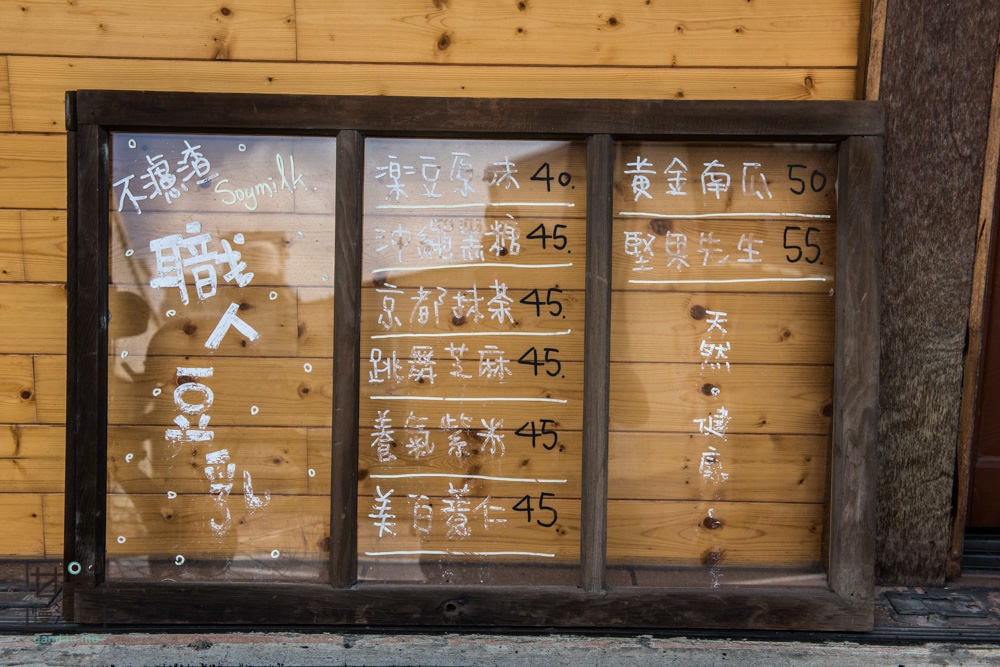 不濾渣 Soymilk.
職人豆乳
楽豆原味 40.
沖繩黑糖 45.
京都抹茶 45.
跳舞芝麻 45.
養氣紫米 45.
美白薏仁 45.
黃金南瓜 50.
堅果先生 55.
天然・健康・